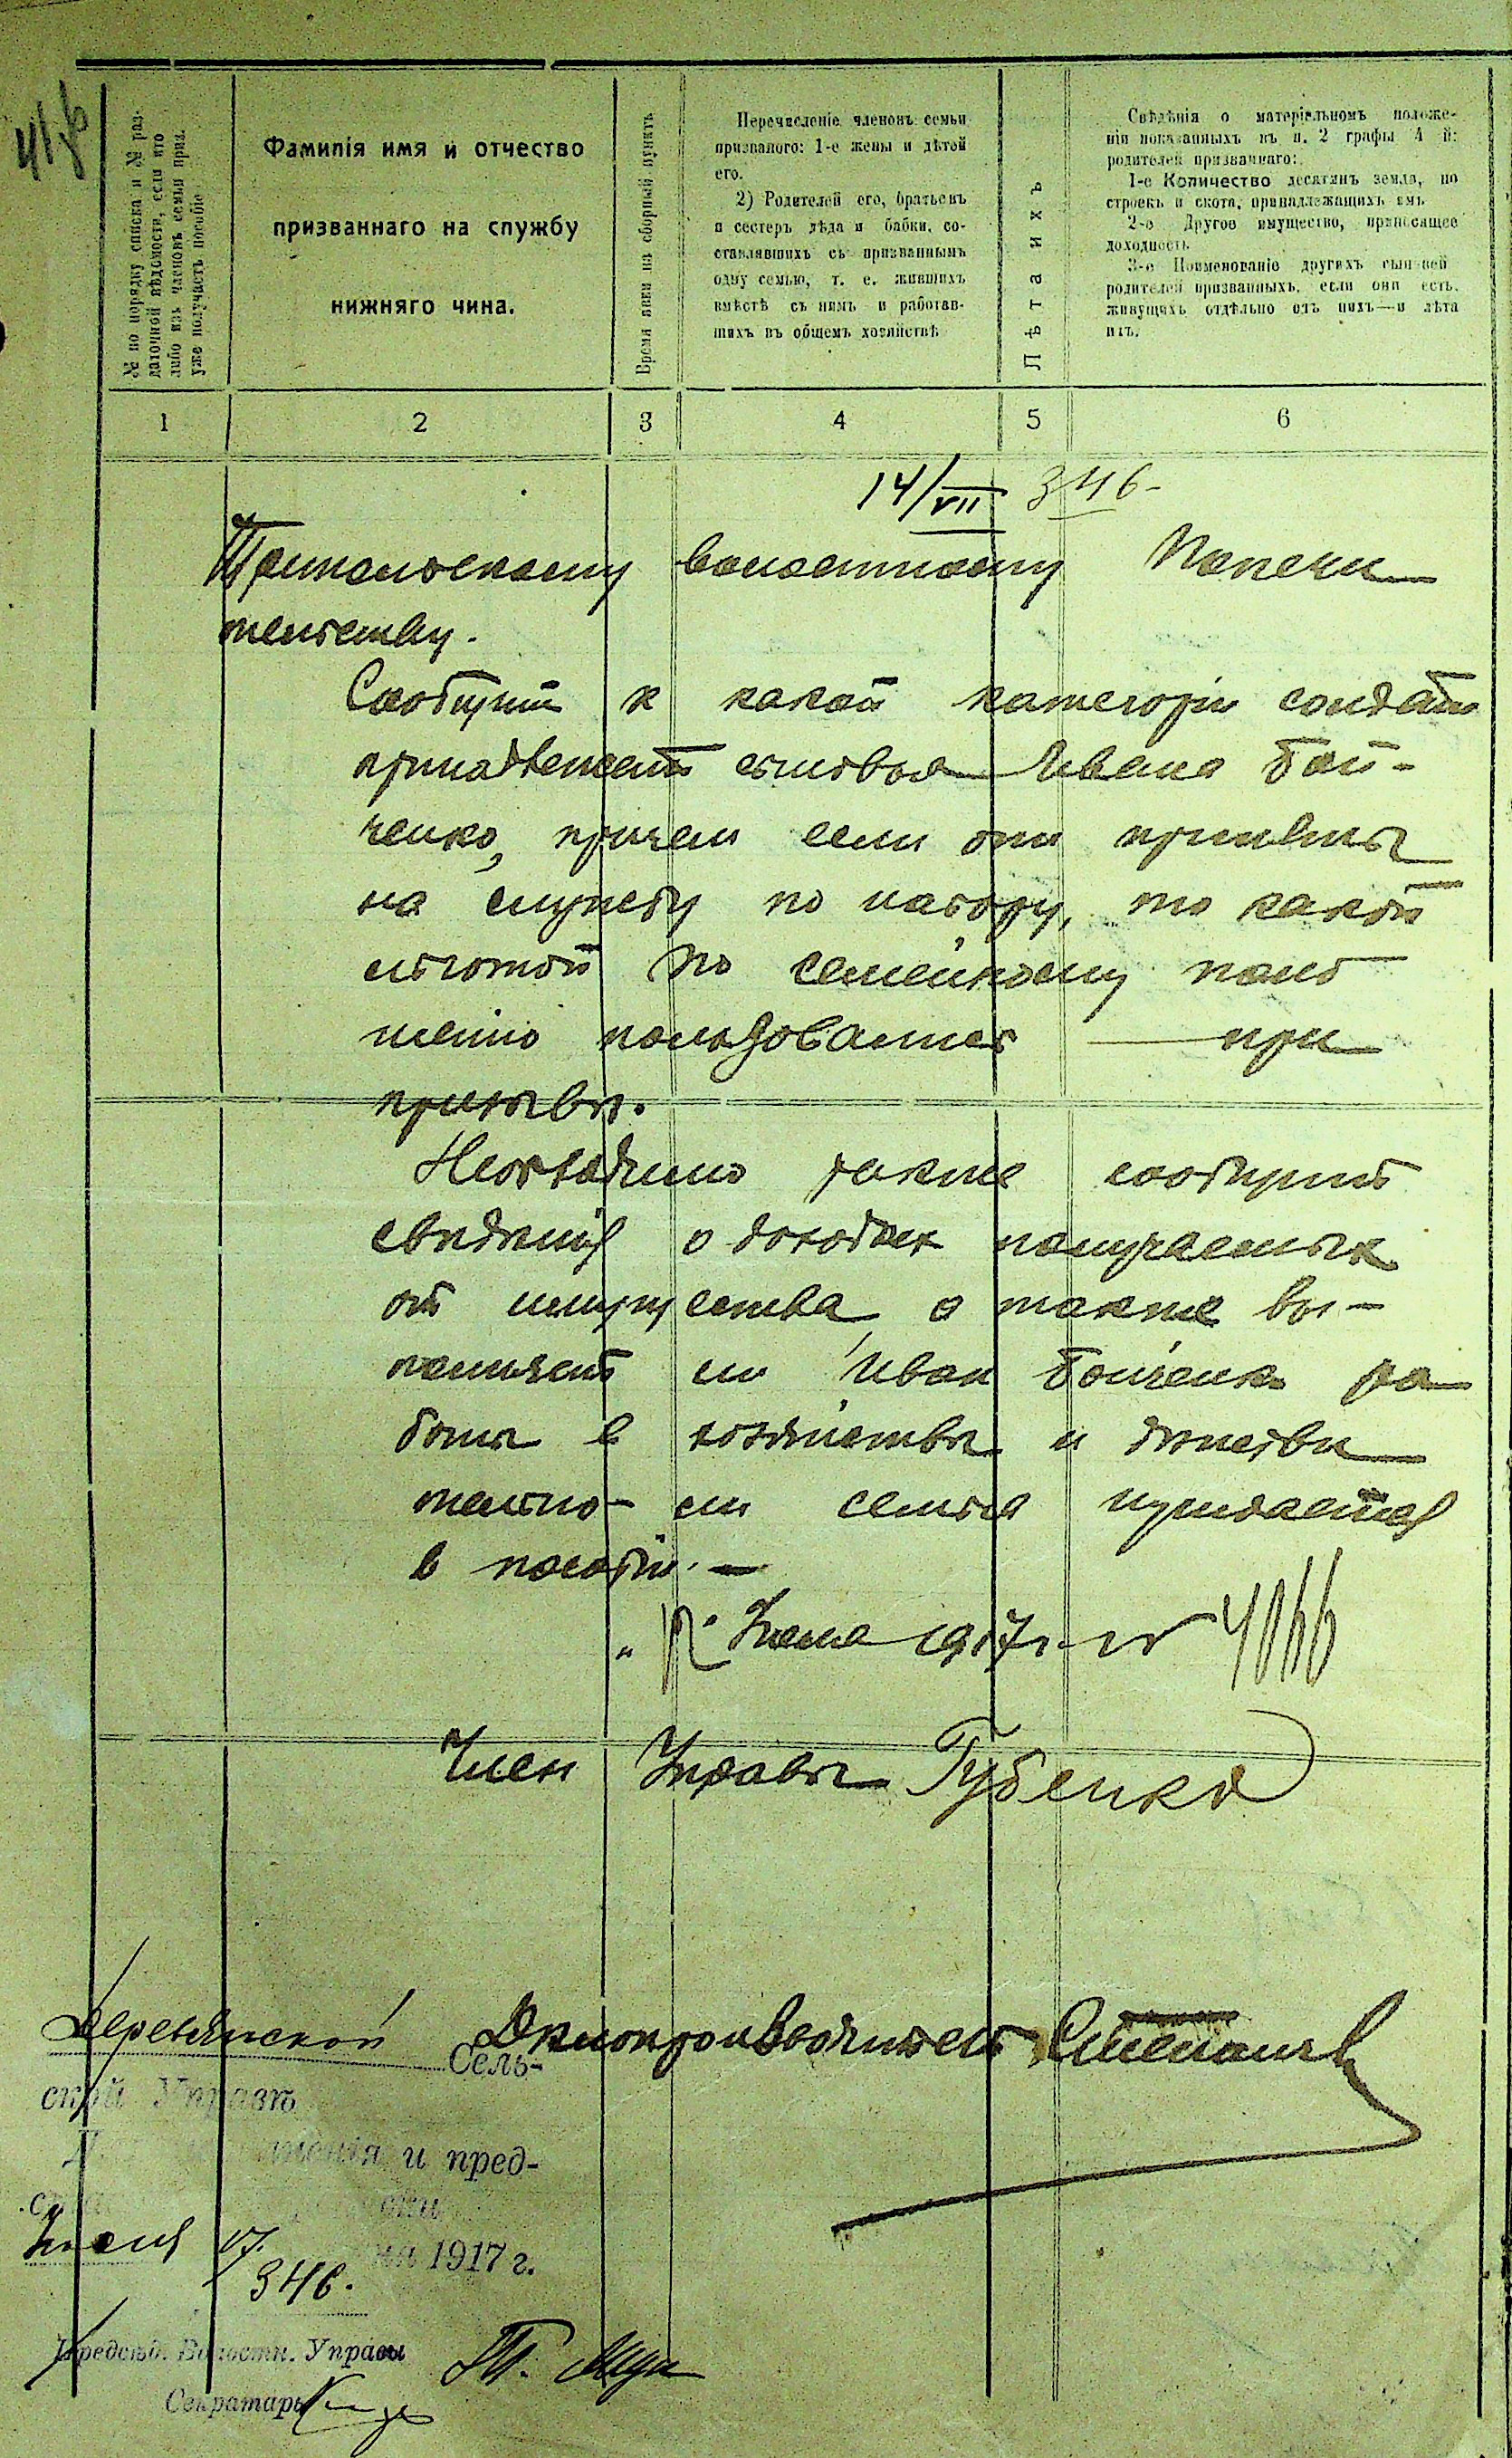 № по порядку списка и № раз-
даточной вѣдомости, если кто
либо изъ членовъ семьи приз.
уже получаетъ пособіе
Фамилія имя и отчество
призваннаго на службу
нижняго чина.
Время явки на сборный пунктъ
Перечисленіе членовъ семьи
призванаго: 1-е жены и дѣтей
его.
2) Родителей его, братьевъ
и сестеръ дѣда и бабки, со-
ставлявшихъ съ призваннымъ
одну семью, т. е. жившихъ
вмѣстѣ съ нимъ и работав-
шихъ въ общемъ хозяйствѣ
Лѣта ихъ
Свѣдѣнія о матеріальномъ положе-
ніи показанныхъ въ п. 2 графы 4 й:
родителей призваннаго:
1-е Количество десятинъ земли, по
строекъ и скота, принадлежащихъ имъ
2-е Другое имущество, приносящее
доходность
3-е Поименованіе другихъ сыновей
родителей призванныхъ, если они есть,
живущихъ отдѣльно отъ нихъ—и лѣта
ихъ.
1 2 3 4 5 6
14/VII 346-
волостному Попечи
тельству.
Сообщить к какой категоріи солдатъ
принадлежатъ сыновья Ивана Бой-
ченко, причем если они приняты
на службу по набору, то какой
льготой по семейному поло
женію пользовались при
призывѣ.
Необходимо также сообщить
свѣдѣнія о доходах получаемых
от имущества а также вы-
полняет ли Иван Бойченко ра
боты в хозяйствѣ и дѣйстви
тельно- ли семья нуждается
в пособіи. —
1917 г. № 4066
Член Управы Губенко
Деревянской Дѣлопроизводитель
Сель-
ской Управѣ
и пред-
Іюля 17.
1917 г.
346.
Предсѣд. Волостн. Управы
Секратарь